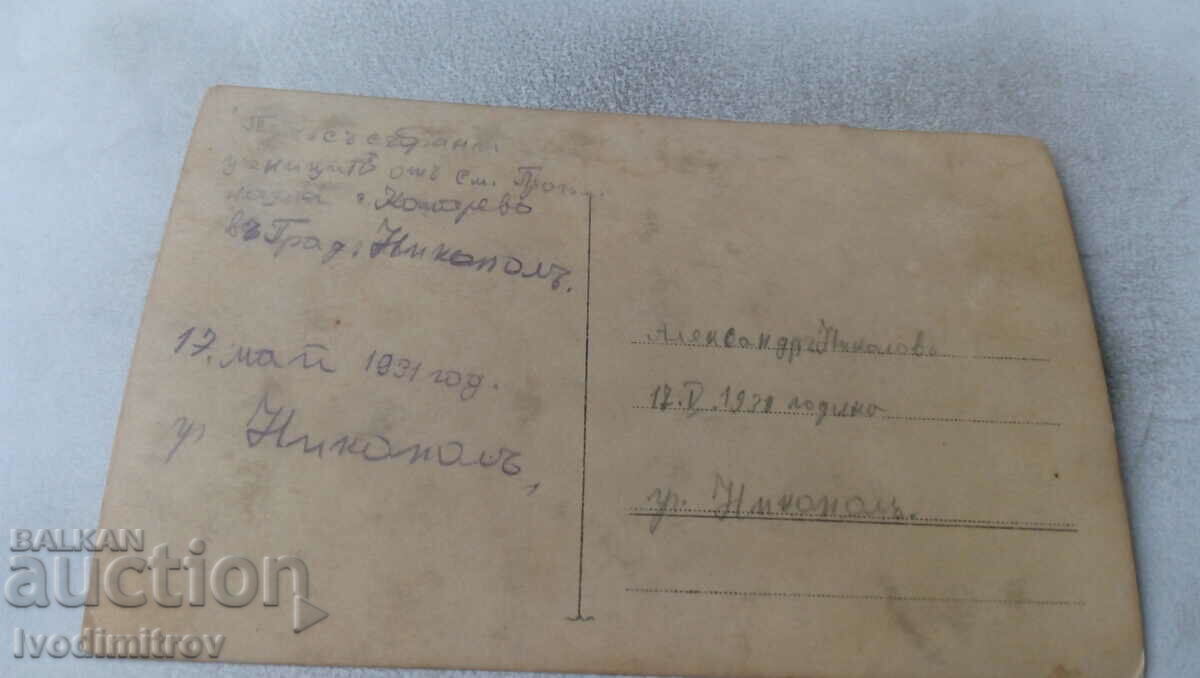 съ събрани
ученицитѣ отъ см. Прог.
Комарево
въ Град. Никополъ.
17. май 1931 год.
гр Никополъ,
Александръ Николовъ
17. V. 1931 година
гр. Никополъ.
BALKAN
auction
Ivodimitrov